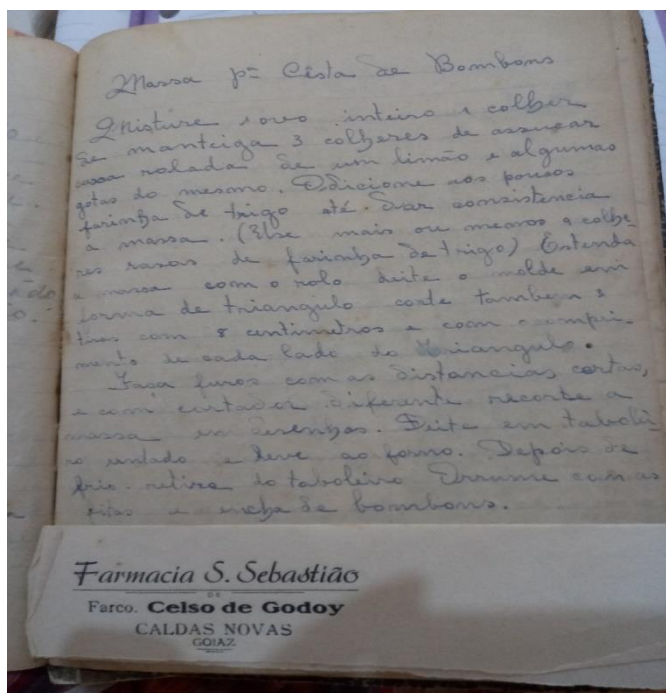 Massa pª Cêsta de Bombons
Misture 1 ovo inteiro 1 colher
de manteiga 3 colheres de assucar
casca rolada de um limão e algumas
gotas do mesmo. Adicione aos poucos
farinha de trigo até dar consistencia
a massa. (Use mais ou menos 9 colhe-
res rasas de farinha de trigo) Estenda
a massa com o rolo deite o molde em
forma de triangulo corte tambem 3
tiras com 8 centimetros e com o compri-
mento de cada lado do triangulo.
Faça furos com as distancias certas,
e com cortador diferente recorte a
massa em desenhos. Deite em tabolei-
ro untado e leve ao forno. Depois de
frio retire do taboleiro Arrume com as
fitas e encha de bombons.
Farmacia S. Sebastião
DE
Farco. Celso de Godoy
CALDAS NOVAS
GOIAZ